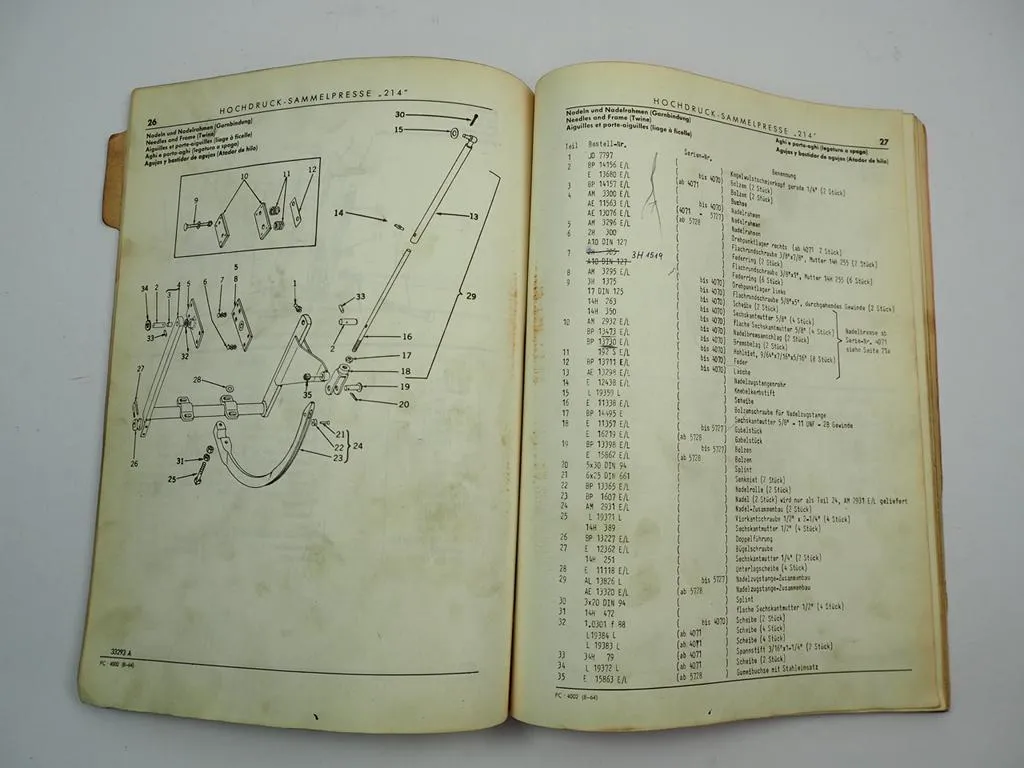 26
HOCHDRUCK-SAMMELPRESSE „214"
Nadeln und Nadelrahmen (Garnbindung)
Needles and Frame (Twine)
Aiguilles et porte-aiguilles (liage à ficelle)
Aghi e porta-aghi (legatura a spago)
Agujas y bastidor de agujas (Atador de hilo)
30
15
10
11
12
9
14
13
5
8
34
2
3
4
5
6
7
1
33
29
33
32
2
16
17
27
28
18
35
19
20
21
22
24
23
26
31
25
33293 A
PC - 4002 (8-64)
HOCHDRUCK-SAMMELPRESSE „214"
27
Nadeln und Nadelrahmen (Garnbindung)
Needles and Frame (Twine)
Aiguilles et porte-aiguilles (liage à ficelle)
Aghi e porta-aghi (legatura a spago)
Agujas y bastidor de agujas (Atador de hilo)
Teil Bestell-Nr. Serien-Nr. Benennung
1 JD 7797 Kegelwulstschmierkopf gerade 1/4" (2 Stück)
2 BP 14156 E/L (bis 4070) Bolzen (2 Stück)
E 13680 E/L (ab 4071) Bolzen (2 Stück)
3 BP 14157 E/L Buchse
4 AM 3300 E/L (bis 4070) Nadelrahmen
AE 11563 E/L (4071 - 5727) Nadelrahmen
AE 13076 E/L (ab 5728) Nadelrahmen
5 AM 3296 E/L Drehpunktlager rechts (ab 4071 2 Stück)
6 2H 300 Flachrundschraube 3/8"x7/8", Mutter 14H 255 (2 Stück)
A10 DIN 127 Federring (2 Stück)
7 2H 305 3H 1519 Flachrundschraube 3/8"x1", Mutter 14H 255 (6 Stück)
A10 DIN 127 Federring (6 Stück)
8 AM 3295 E/L (bis 4070) Drehpunktlager links
9 3H 1375 (bis 4070) Flachrundschraube 5/8"x5", durchgehendes Gewinde (2 Stück)
17 DIN 125 (bis 4070) Scheibe (2 Stück)
14H 263 (bis 4070) Sechskantmutter 5/8" (4 Stück)
14H 350 (bis 4070) flache Sechskantmutter 5/8" (4 Stück)
10 AM 2932 E/L (bis 4070) Nadelbremsanschlag (2 Stück)
BP 13473 E/L (bis 4070) Bremsbelag (2 Stück)
BP 13730 E/L (bis 4070) Hohlniet, 9/64"x7/16"x5/16" (8 Stück)
11 192 S E/L (bis 4070) Feder
12 BP 13711 E/L (bis 4070) Lasche
Nadelbremse ab
Serie-Nr. 4071
siehe Seite 21a
13 AE 13298 E/L Nadelzugstangenrohr
14 E 12438 E/L Knebelkerbstift
15 L 19359 L Scheibe
16 E 11338 E/L Bolzenschraube für Nadelzugstange
17 BP 14495 E Sechskantmutter 5/8" - 11 UNF - 2B Gewinde
18 E 11357 E/L (bis 5727) Gabelstück
E 16219 E/L (ab 5728) Gabelstück
19 BP 13398 E/L (bis 5727) Bolzen
E 15862 E/L (ab 5728) Bolzen
20 5x30 DIN 94 Splint
21 6x25 DIN 661 Senkniet (2 Stück)
22 BP 13365 E/L Nadelrolle (2 Stück)
23 BP 1607 E/L Nadel (2 Stück) wird nur als Teil 24, AM 2931 E/L geliefert
24 AM 2931 E/L Nadel-Zusammenbau (2 Stück)
25 L 19371 L Vierkantschraube 1/2" x 2-1/4" (2 Stück)
14H 389 Sechskantmutter 1/2" (4 Stück)
26 BP 13227 E/L Doppelführung
27 E 12362 E/L Bügelschraube
14H 251 Sechskantmutter 1/4" (2 Stück)
28 E 11118 E/L Unterlagscheibe (4 Stück)
29 AL 13826 L (bis 5727) Nadelzugstange-Zusammenbau
AE 13320 E/L (ab 5728) Nadelzugstange-Zusammenbau
30 3x20 DIN 94 Splint
31 14H 472 flache Sechskantmutter 1/2" (4 Stück)
32 1.0301 f 88 (bis 4070) Scheibe (2 Stück)
L19384 L (ab 4071) Scheibe (4 Stück)
L 19383 L (ab 4071) Scheibe (4 Stück)
33 34H 79 (ab 4071) Spannstift 3/16"x1-1/4" (2 Stück)
34 L 19372 L (ab 4071) Scheibe (2 Stück)
35 E 15863 E/L (ab 5728) Gummibuchse mit Stahleinsatz
PC - 4002 (8-64)